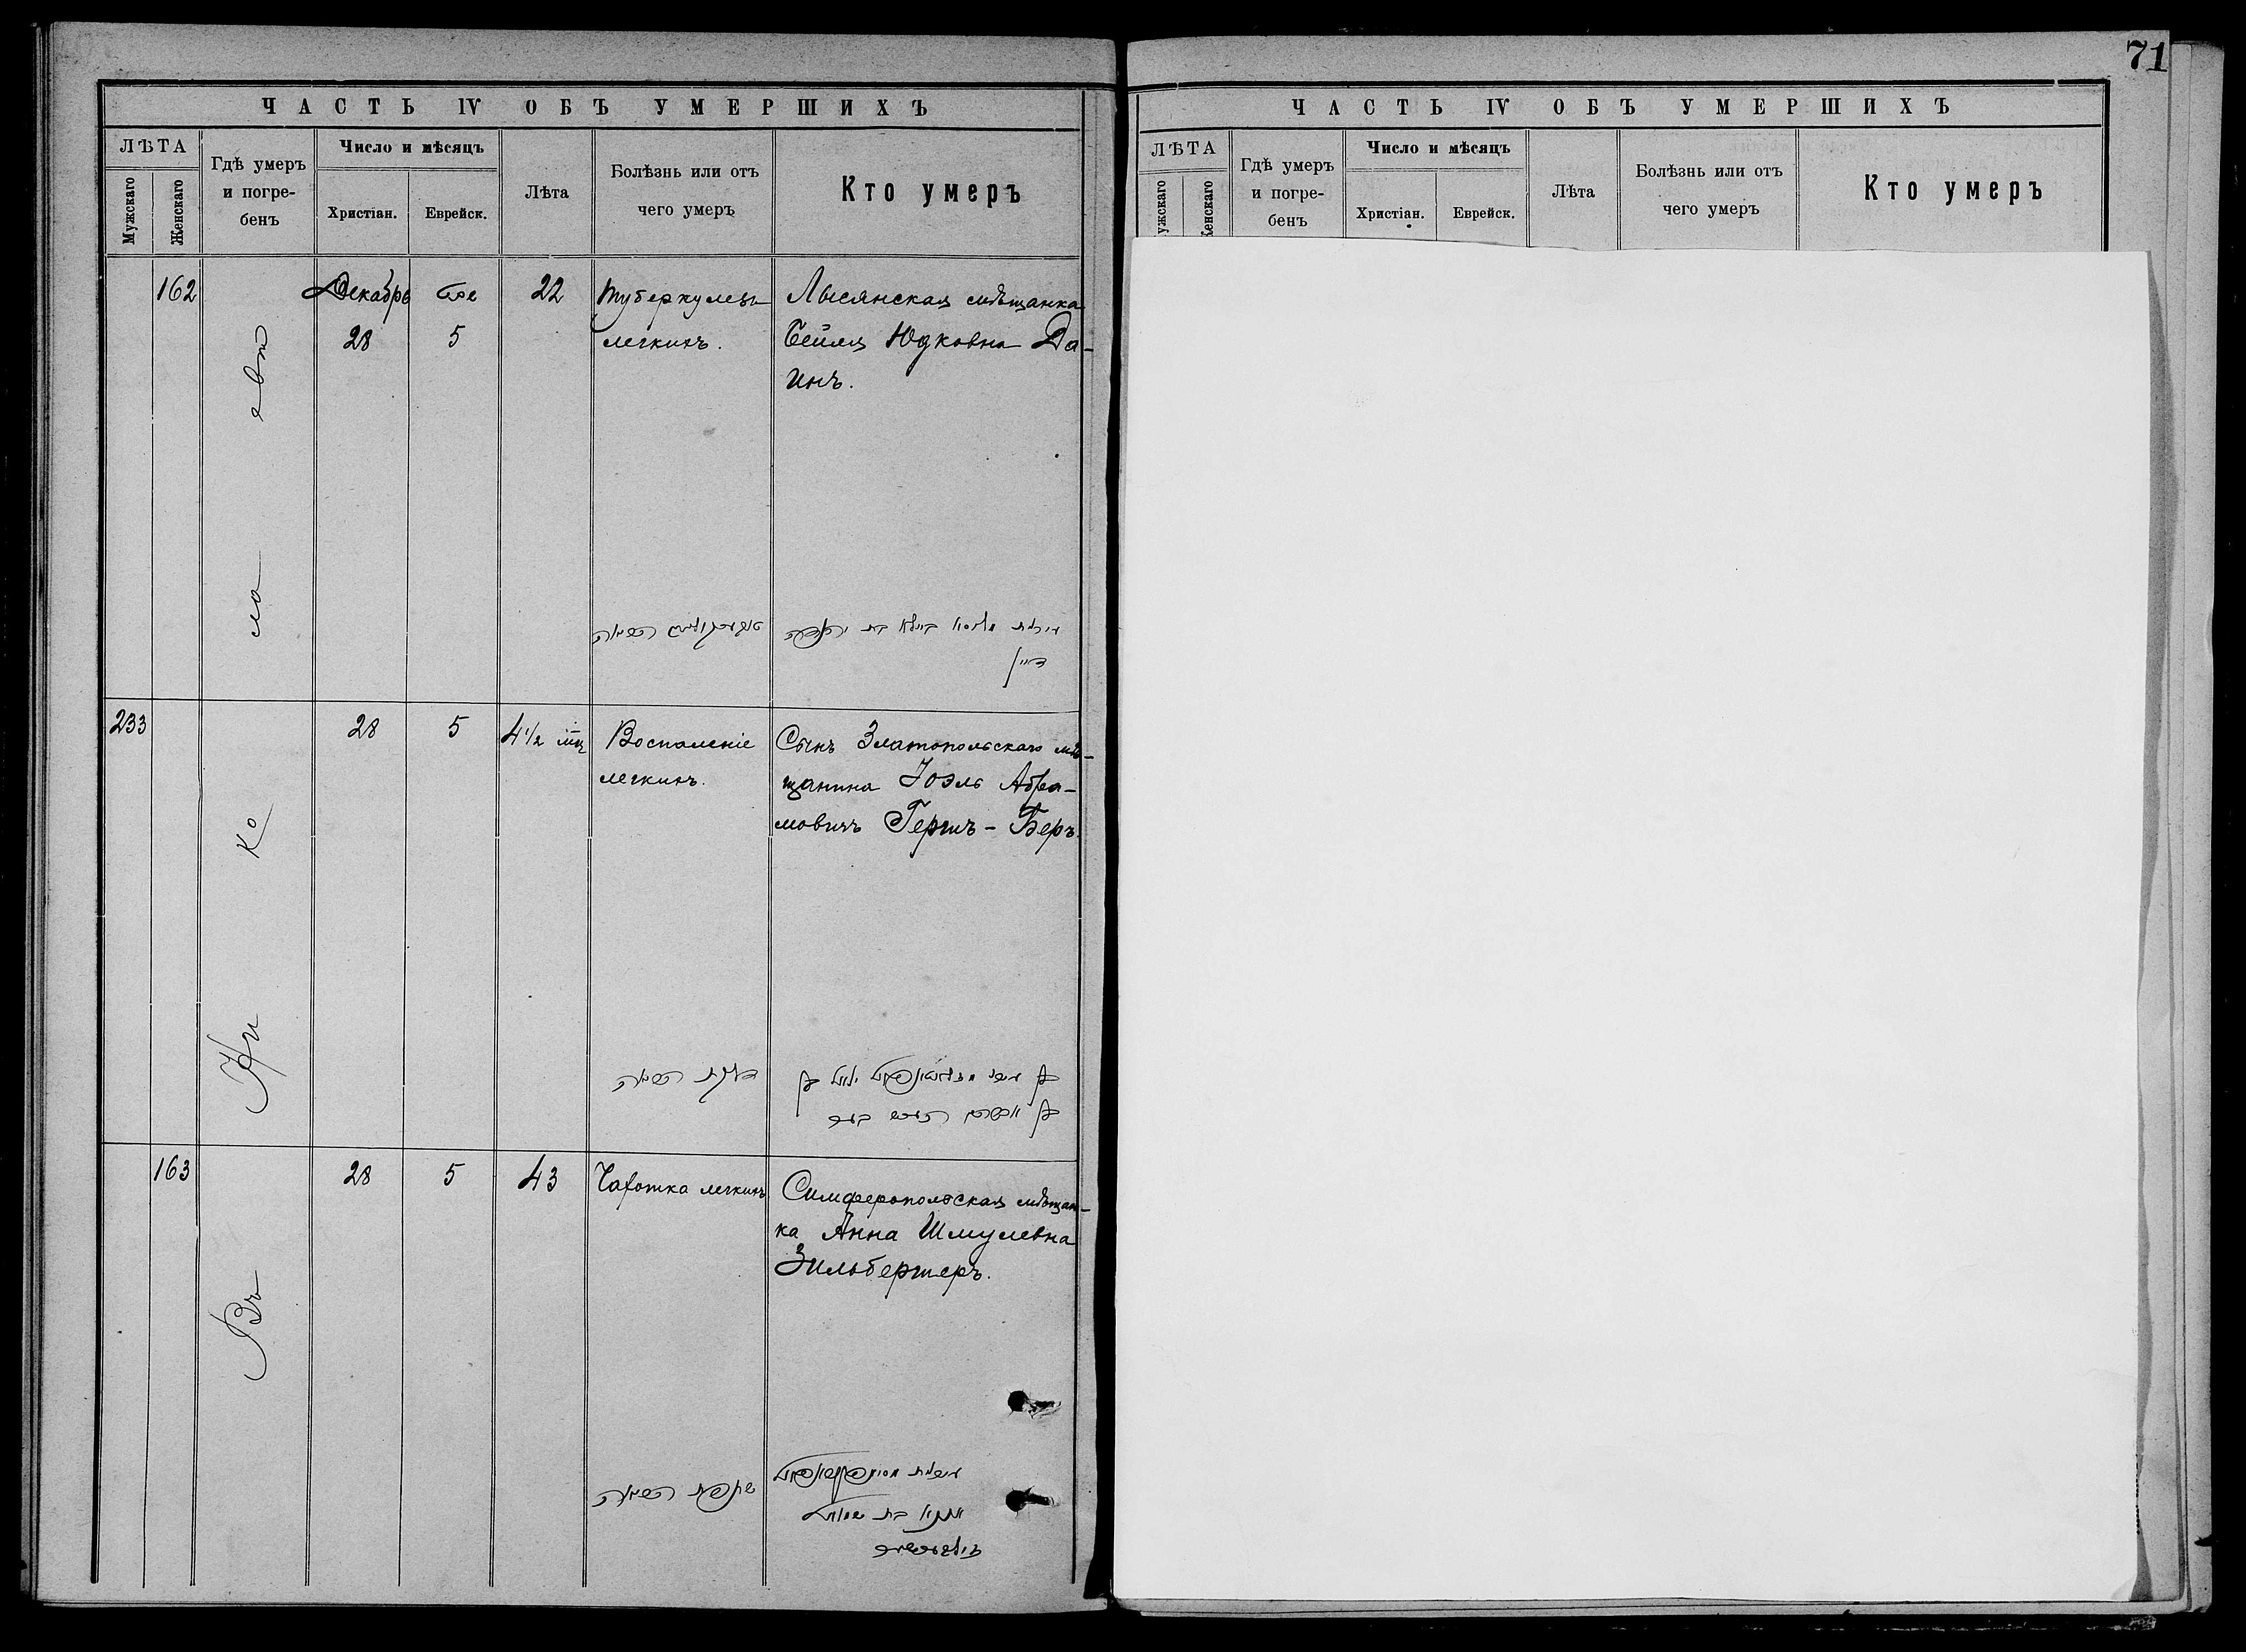 71
ЧАСТЬ IV ОБЪ УМЕРШИХЪ
ЛѢТА
Мужскаго
Женскаго
Гдѣ умеръ
и погре-
бенъ
Число и мѣсяцъ
Христіан.
Еврейск.
Лѣта
Болѣзнь или отъ
чего умеръ
Кто умеръ
162
Декабрь
28
5
22
Туберкулезъ
легкихъ.
Лысянская мѣщанка
Бейля Юдковна Да-
инъ.
דיין
233
28
5
4 1/2 мц
Воспаленіе
легкихъ.
Сынъ Златопольскаго мѣ-
щанина Іоэль Абра-
мовичъ Гершъ-Беръ.
דלקת הריאה
163
28
5
43
Чахотка легкихъ
Симферопольская мѣщан-
ка Анна Шмулевна
Зильбершеръ.
שחפת הריאה
Въ Ни ко ла евѣ
ЧАСТЬ IV ОБЪ УМЕРШИХЪ
ЛѢТА
ужскаго
енскаго
Гдѣ умеръ
и погре-
бенъ
Число и мѣсяцъ
Христіан.
Еврейск.
Лѣта
Болѣзнь или отъ
чего умеръ
Кто умеръ